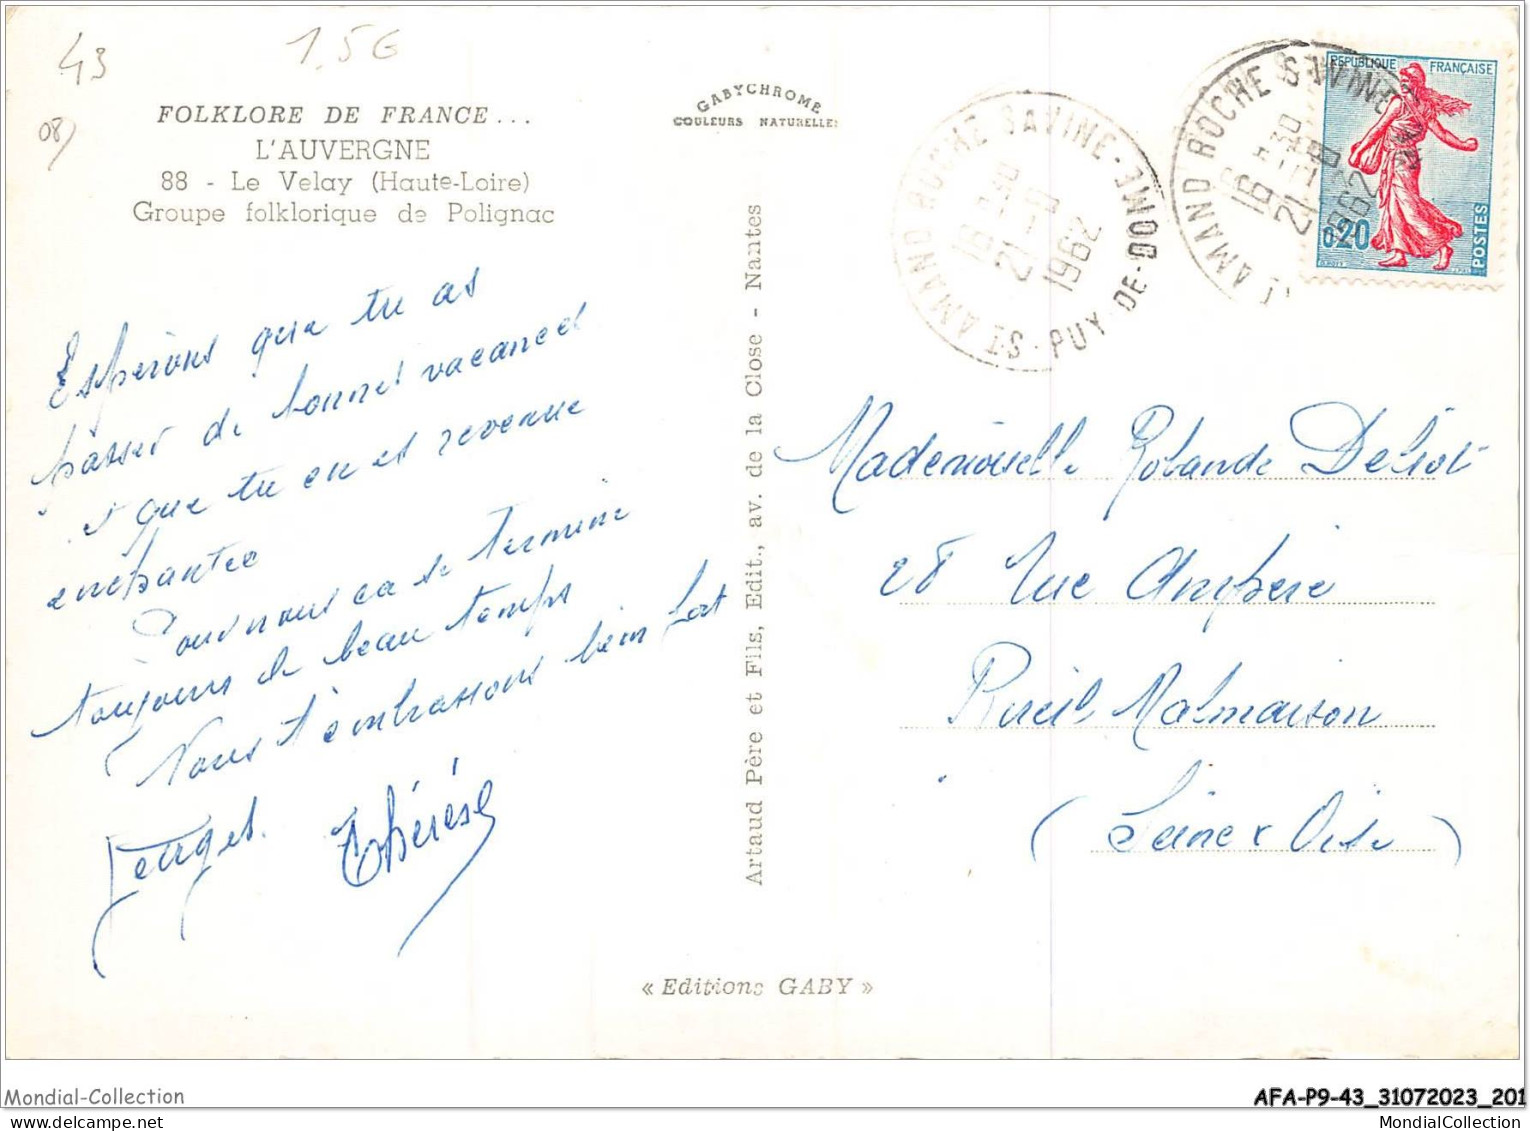 43
1,5G
08)
FOLKLORE DE FRANCE...
L'AUVERGNE
88 - Le Velay (Haute-Loire)
Groupe folklorique de Polignac
Espérons que tu as
passer de bonnes vacances
et que tu en es revenue
enchantée
Pour nous ça se termine
toujours de beau temps
Nous t'embrassons bien fort
Georges. Thérèse
GABYCHROME
COULEURS NATURELLES
Artaud Père et Fils, Edit., av. de la Close - Nantes
« Editions GABY »
ST AMAND ROCHE SAVINE - PUY-DE-DOME
16 - 30
21 - 8
1962
ST AMAND ROCHE SAVINE
16 - 30
21 - 8
1962
REPUBLIQUE FRANÇAISE
0,20
POSTES
Mademoiselle Rolande Deliot
28 rue Ampère
Rueil Malmaison
(Seine & Oise)
Mondial-Collection
AFA-P9-43_31072023_201
MondialCollection